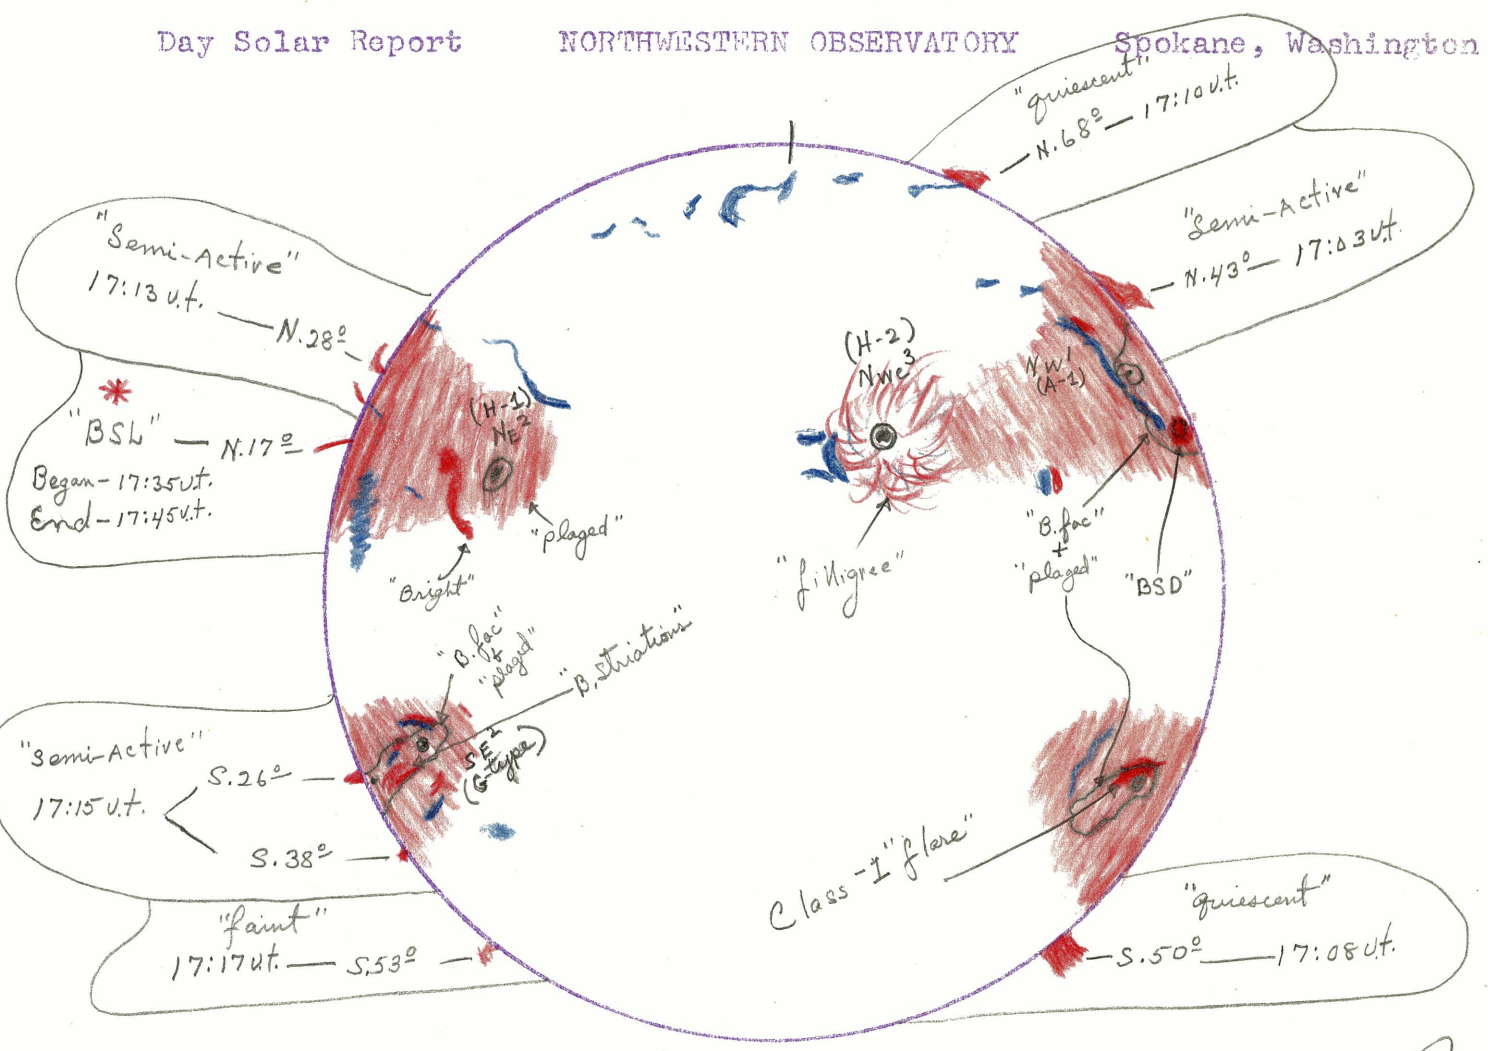 Day Solar Report NORTHWESTERN OBSERVATORY Spokane, Washington
"quiescent"
N.68º — 17:10 u.t.
"Semi-Active"
N.43º — 17:03 u.t.
"Semi-Active"
17:13 u.t. — N.28º
"BSL" — N.17º
Began - 17:35 u.t.
End - 17:45 u.t.
(H-1)
NE²
"plaged"
"Bright"
(H-2)
NWC³
"filligree"
NW¹
(A-1)
"B.fac"
+
"plaged"
"BSD"
"B.fac"
+
"plaged"
"B. Striations"
SE²
(G-type)
"Semi-Active"
17:15 u.t.
S.26º
S.38º
"faint"
17:17 u.t. — S.53º
Class-1 "flare"
"quiescent"
S.50º — 17:08 u.t.